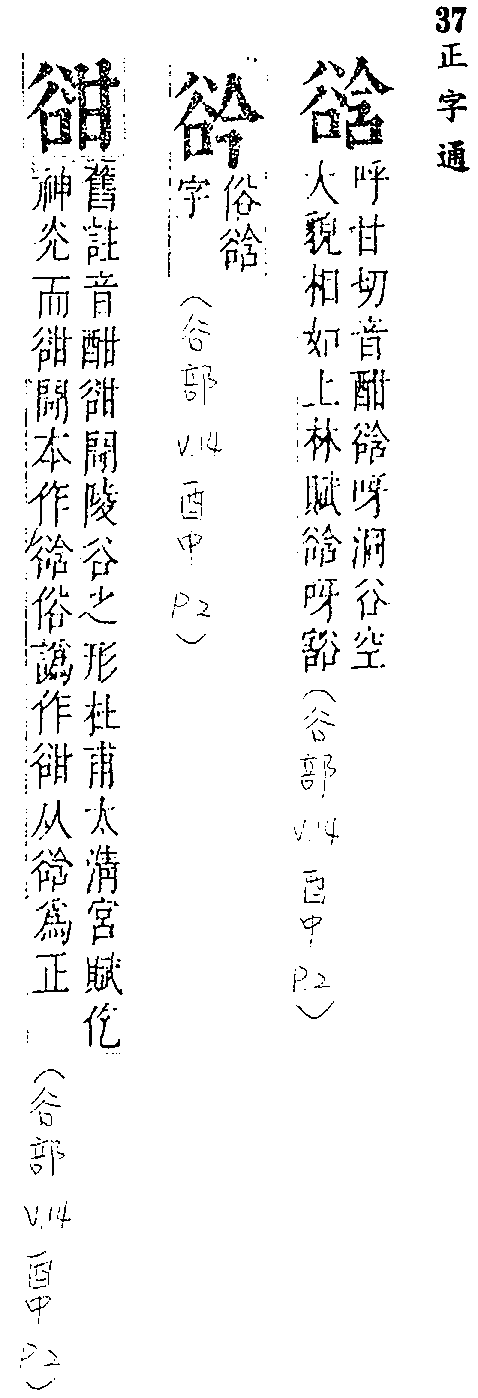 37 正字通
谽
呼甘切音酣谽呀澗谷空
大貌相如上林賦谽呀豁
(谷部 V.14 酉中 P.2)
俗谽
字
(谷部 V.14 酉中 P.2)
舊註音酣閜陵谷之形杜甫太清宮賦仡
神光而閜本作谽俗譌作从谽爲正
(谷部 V.14 酉中 P.2)